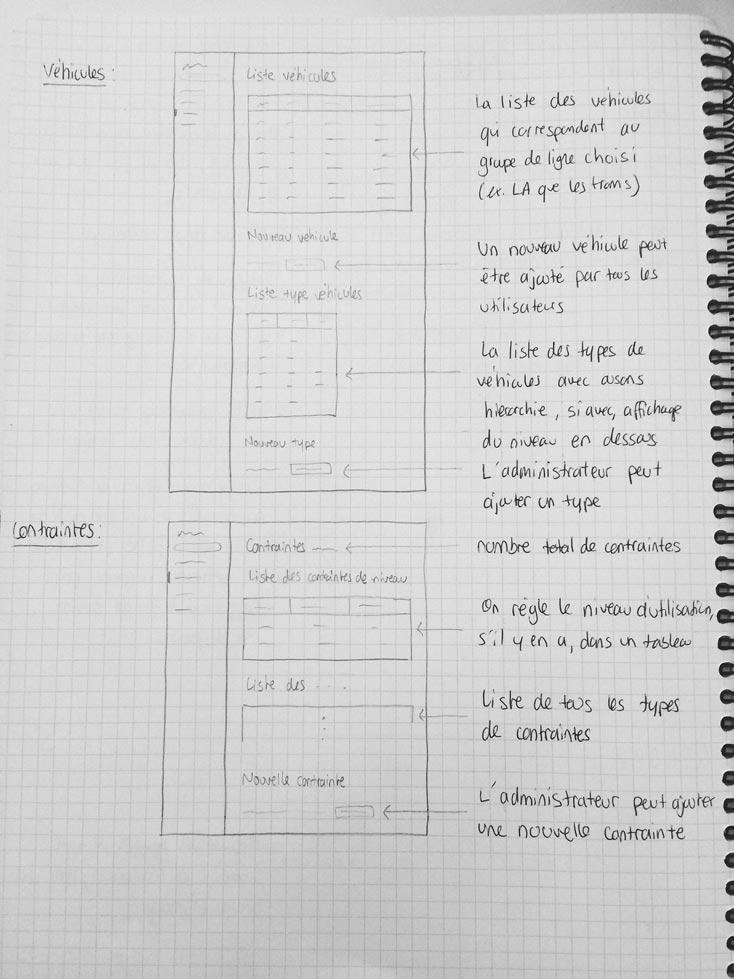 Véhicules :
Liste véhicules
La liste des véhicules
qui correspondent au
groupe de ligne choisi
(ex. LA que les trams)
Nouveau véhicule
Un nouveau véhicule peut
être ajouté par tous les
utilisateurs
Liste type véhicules
La liste des types de
véhicules avec ou sans
hierarchie, si avec, affichage
du niveau en dessous
Nouveau type
L'administrateur peut
ajouter un type
Contraintes :
Contraintes
nombre total de contraintes
Liste des contraintes de niveau
On règle le niveau d'utilisation,
s'il y en a, dans un tableau
Liste des . . .
Liste de tous les types
de contraintes
Nouvelle contrainte
L'administrateur peut ajouter
une nouvelle contrainte